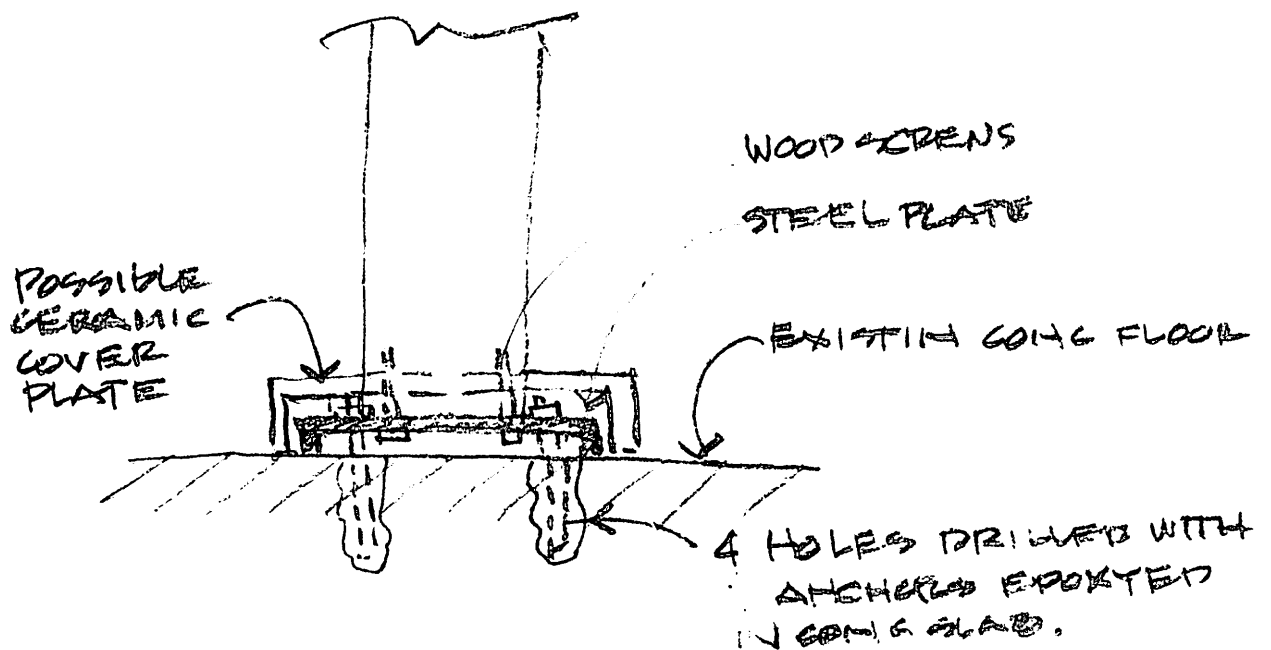 WOOD SCREWS
STEEL PLATE
POSSIBLE
CERAMIC
COVER
PLATE
EXISTIN CONC FLOOR
4 HOLES DRILLED WITH
ANCHORS EPOXIED
IN CONC SLAB.